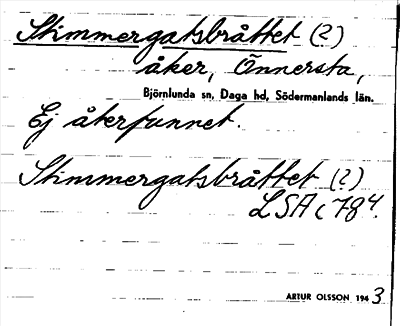 Stimmergatsbråttet (?)
åker, Önnersta,
Björnlunda sn, Daga hd, Södermanlands län.
Ej återfunnet.
Stimmergatsbråttet (?)
LSA c 78⁴.
ARTUR OLSSON 1943